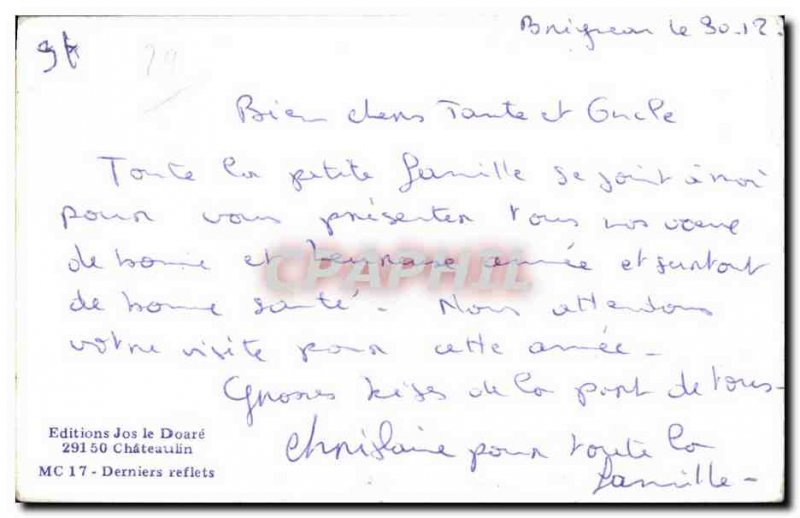 Brignean le 30.12.
Bien chers Tante et Oncle
Toute la petite famille se joint à moi
pour vous présenter tous nos voeux
de bonne et heureuse année et surtout
CPAPHIL
de bonne santé. Nous attendons
votre visite pour cette année.
Grosses bises de la part de tous.
Editions Jos le Doaré
29150 Châteaulin
MC 17 - Derniers reflets
Ghislaine pour toute la
famille.